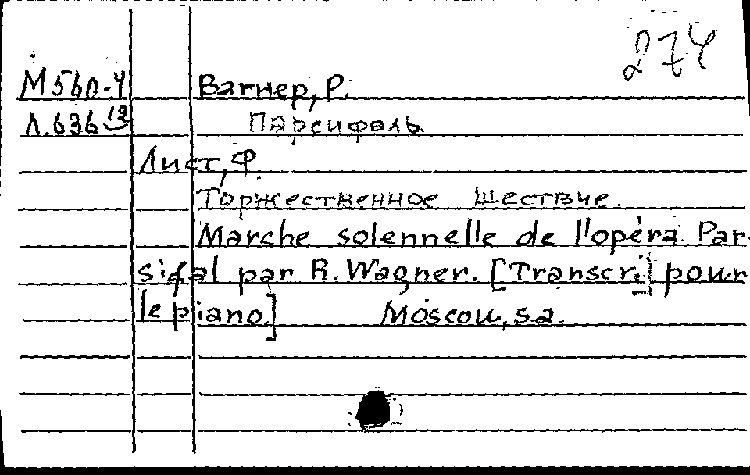 274
М560-4 Вагнер, Р.
Л.636 Парсифаль
Лист, Ф.
Торжественное шествие.
Marche solennelle de l'opéra Par-
sifal par R. Wagner. [Transcr.] pour
le piano.] Moscou, s.a.